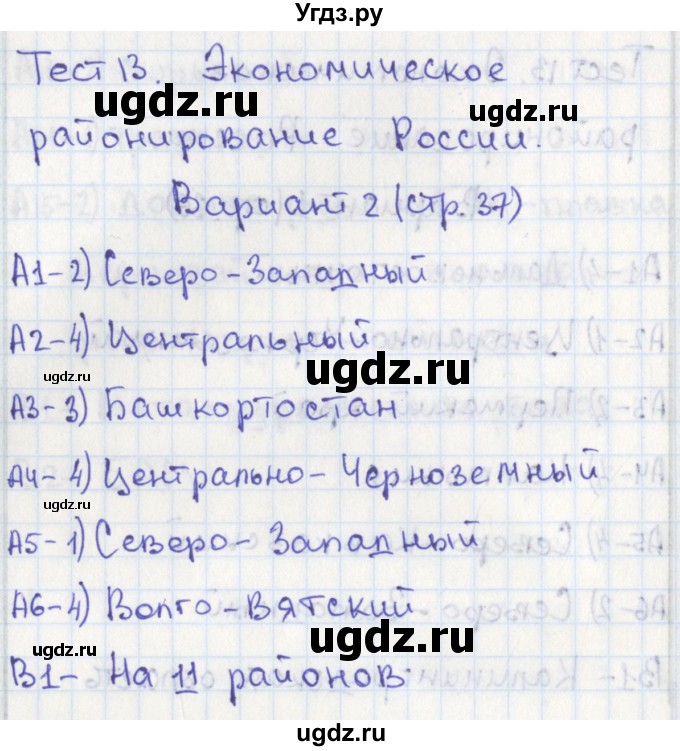 Угдз.ру
Тест 13. Экономическое
районирование России.
Вариант 2 (стр. 37)
А1-2) Северо-Западный
А2-4) Центральный
А3-3) Башкортостан
А4-4) Центрально-Черноземный
А5-1) Северо-Западный
А6-4) Волго-Вятский
В1- На 11 районов
ugdz.ru
ugdz.ru
ugdz.ru
ugdz.ru
ugdz.ru
ugdz.ru
ugdz.ru
ugdz.ru
ugdz.ru